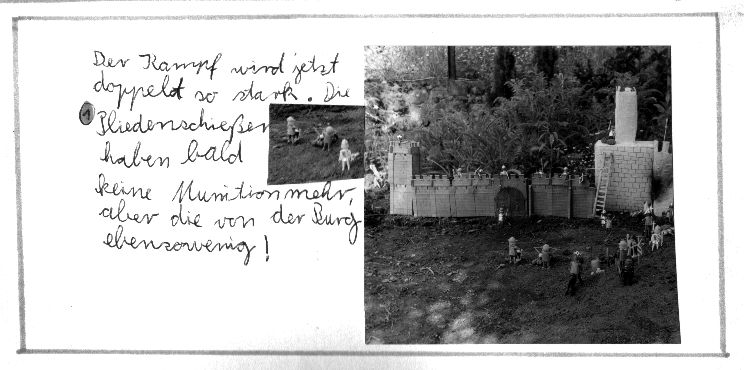 Der Kampf wird jetzt
doppeld so stark. Die
1 Pliedenschießer
haben bald
keine Munition mehr,
aber die von der Burg
ebensowenig!